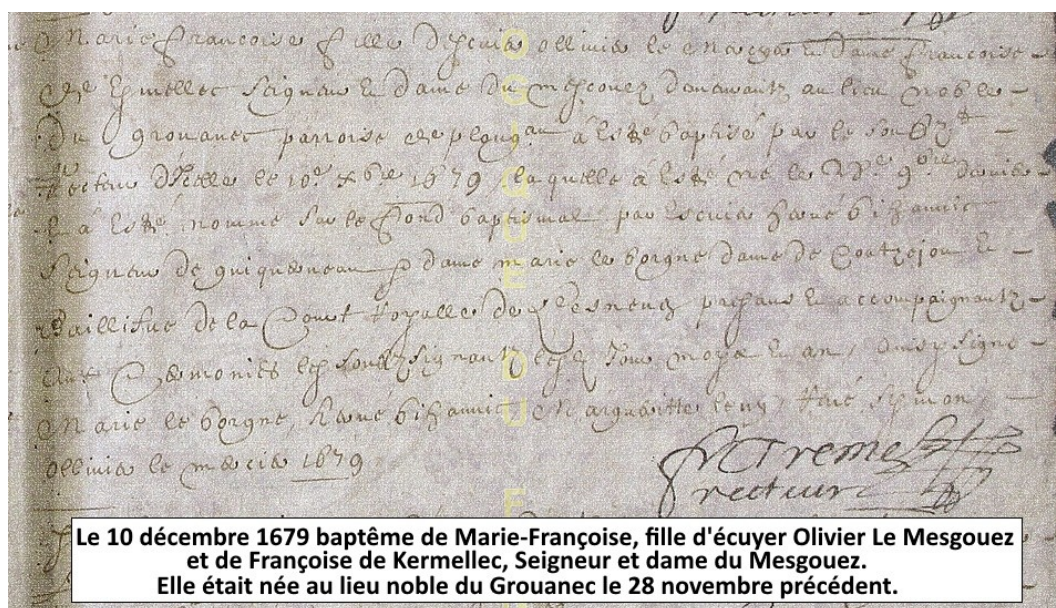 Marie francoise fille descuier ollivier le et dame francoise
de Kermellec Seigneur et dame du mescouez demeurantz au lieu noble
du grouanec parroise de ploug^an à esté baptisé par le soubz^t
recteur d'icelle le 10^e x^bre 1679 laquelle à esté né le 28^e 9^bre dernier
et à esté nommé sur le fond baptismal par Escuier hervé bihannic
Seigneur de guiquerneau dame marie le borgne dame de Coatzejou
Baillifue de la Court Royalle de Lesneuen et accompaignantz
aux Ceremonies les soubzsignantz lesd Jour moys et an, Signe
Marie le borgne, hervé bihannic, Margueritte René Symon,
Ollivier le mercier 1679
recteur
Le 10 décembre 1679 baptême de Marie-Françoise, fille d'écuyer Olivier Le Mesgouez
et de Françoise de Kermellec, Seigneur et dame du Mesgouez.
Elle était née au lieu noble du Grouanec le 28 novembre précédent.